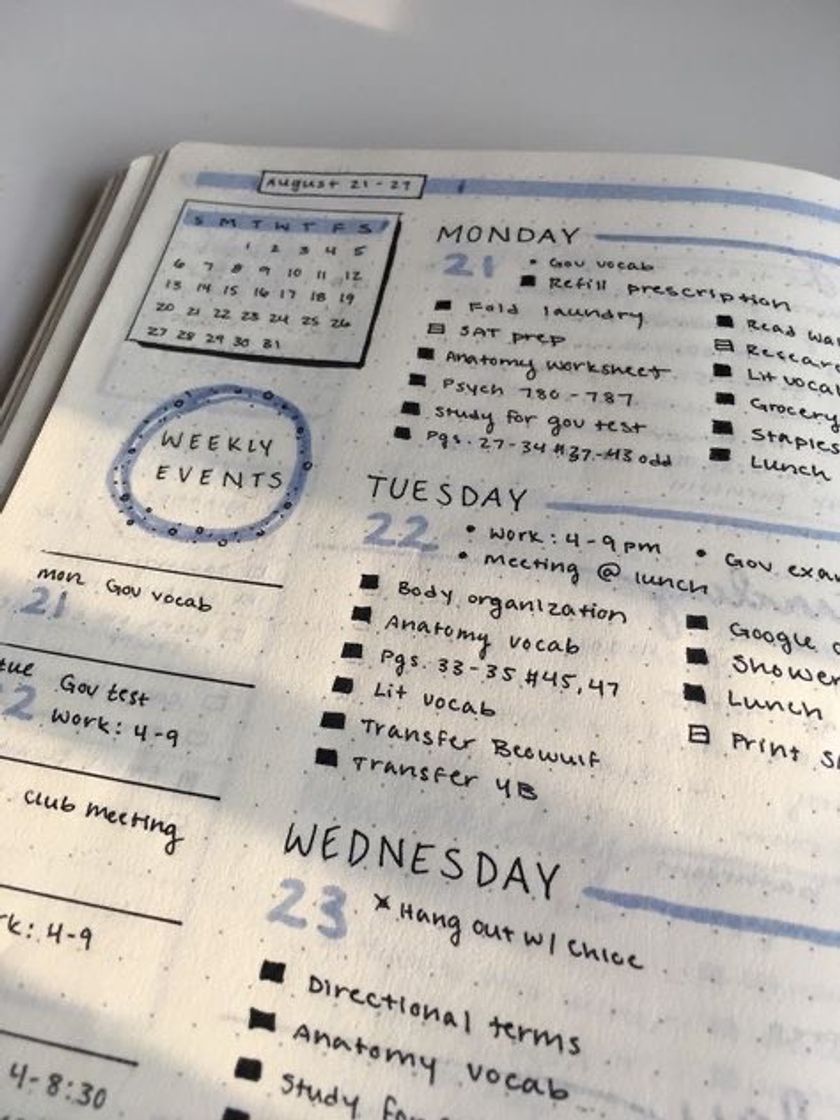 August 21-27
S M T W T F S
1 2 3 4 5
6 7 8 9 10 11 12
13 14 15 16 17 18 19
20 21 22 23 24 25 26
27 28 29 30 31
WEEKLY
EVENTS
mon Gov vocab
21
tue Gov test
Work: 4-9
club meeting
4-9
4-8:30
MONDAY
21 • Gov vocab
Refill prescription
Fold laundry
SAT prep
Anatomy worksheet
Psych 780-787
Study for gov test
Pgs. 27-34 #37-43 odd
Read
Lit vocab
Grocery
Staples
Lunch
TUESDAY
22 • Work: 4-9 pm • Gov
• Meeting @ lunch
Body organization
Anatomy vocab
Pgs. 33-35 #45,47
Lit vocab
Transfer Beowulf
Transfer 4B
Google
Shower
Lunch
Print
WEDNESDAY
23 Hang out w/ Chloe
Directional terms
Anatomy vocab
Study for